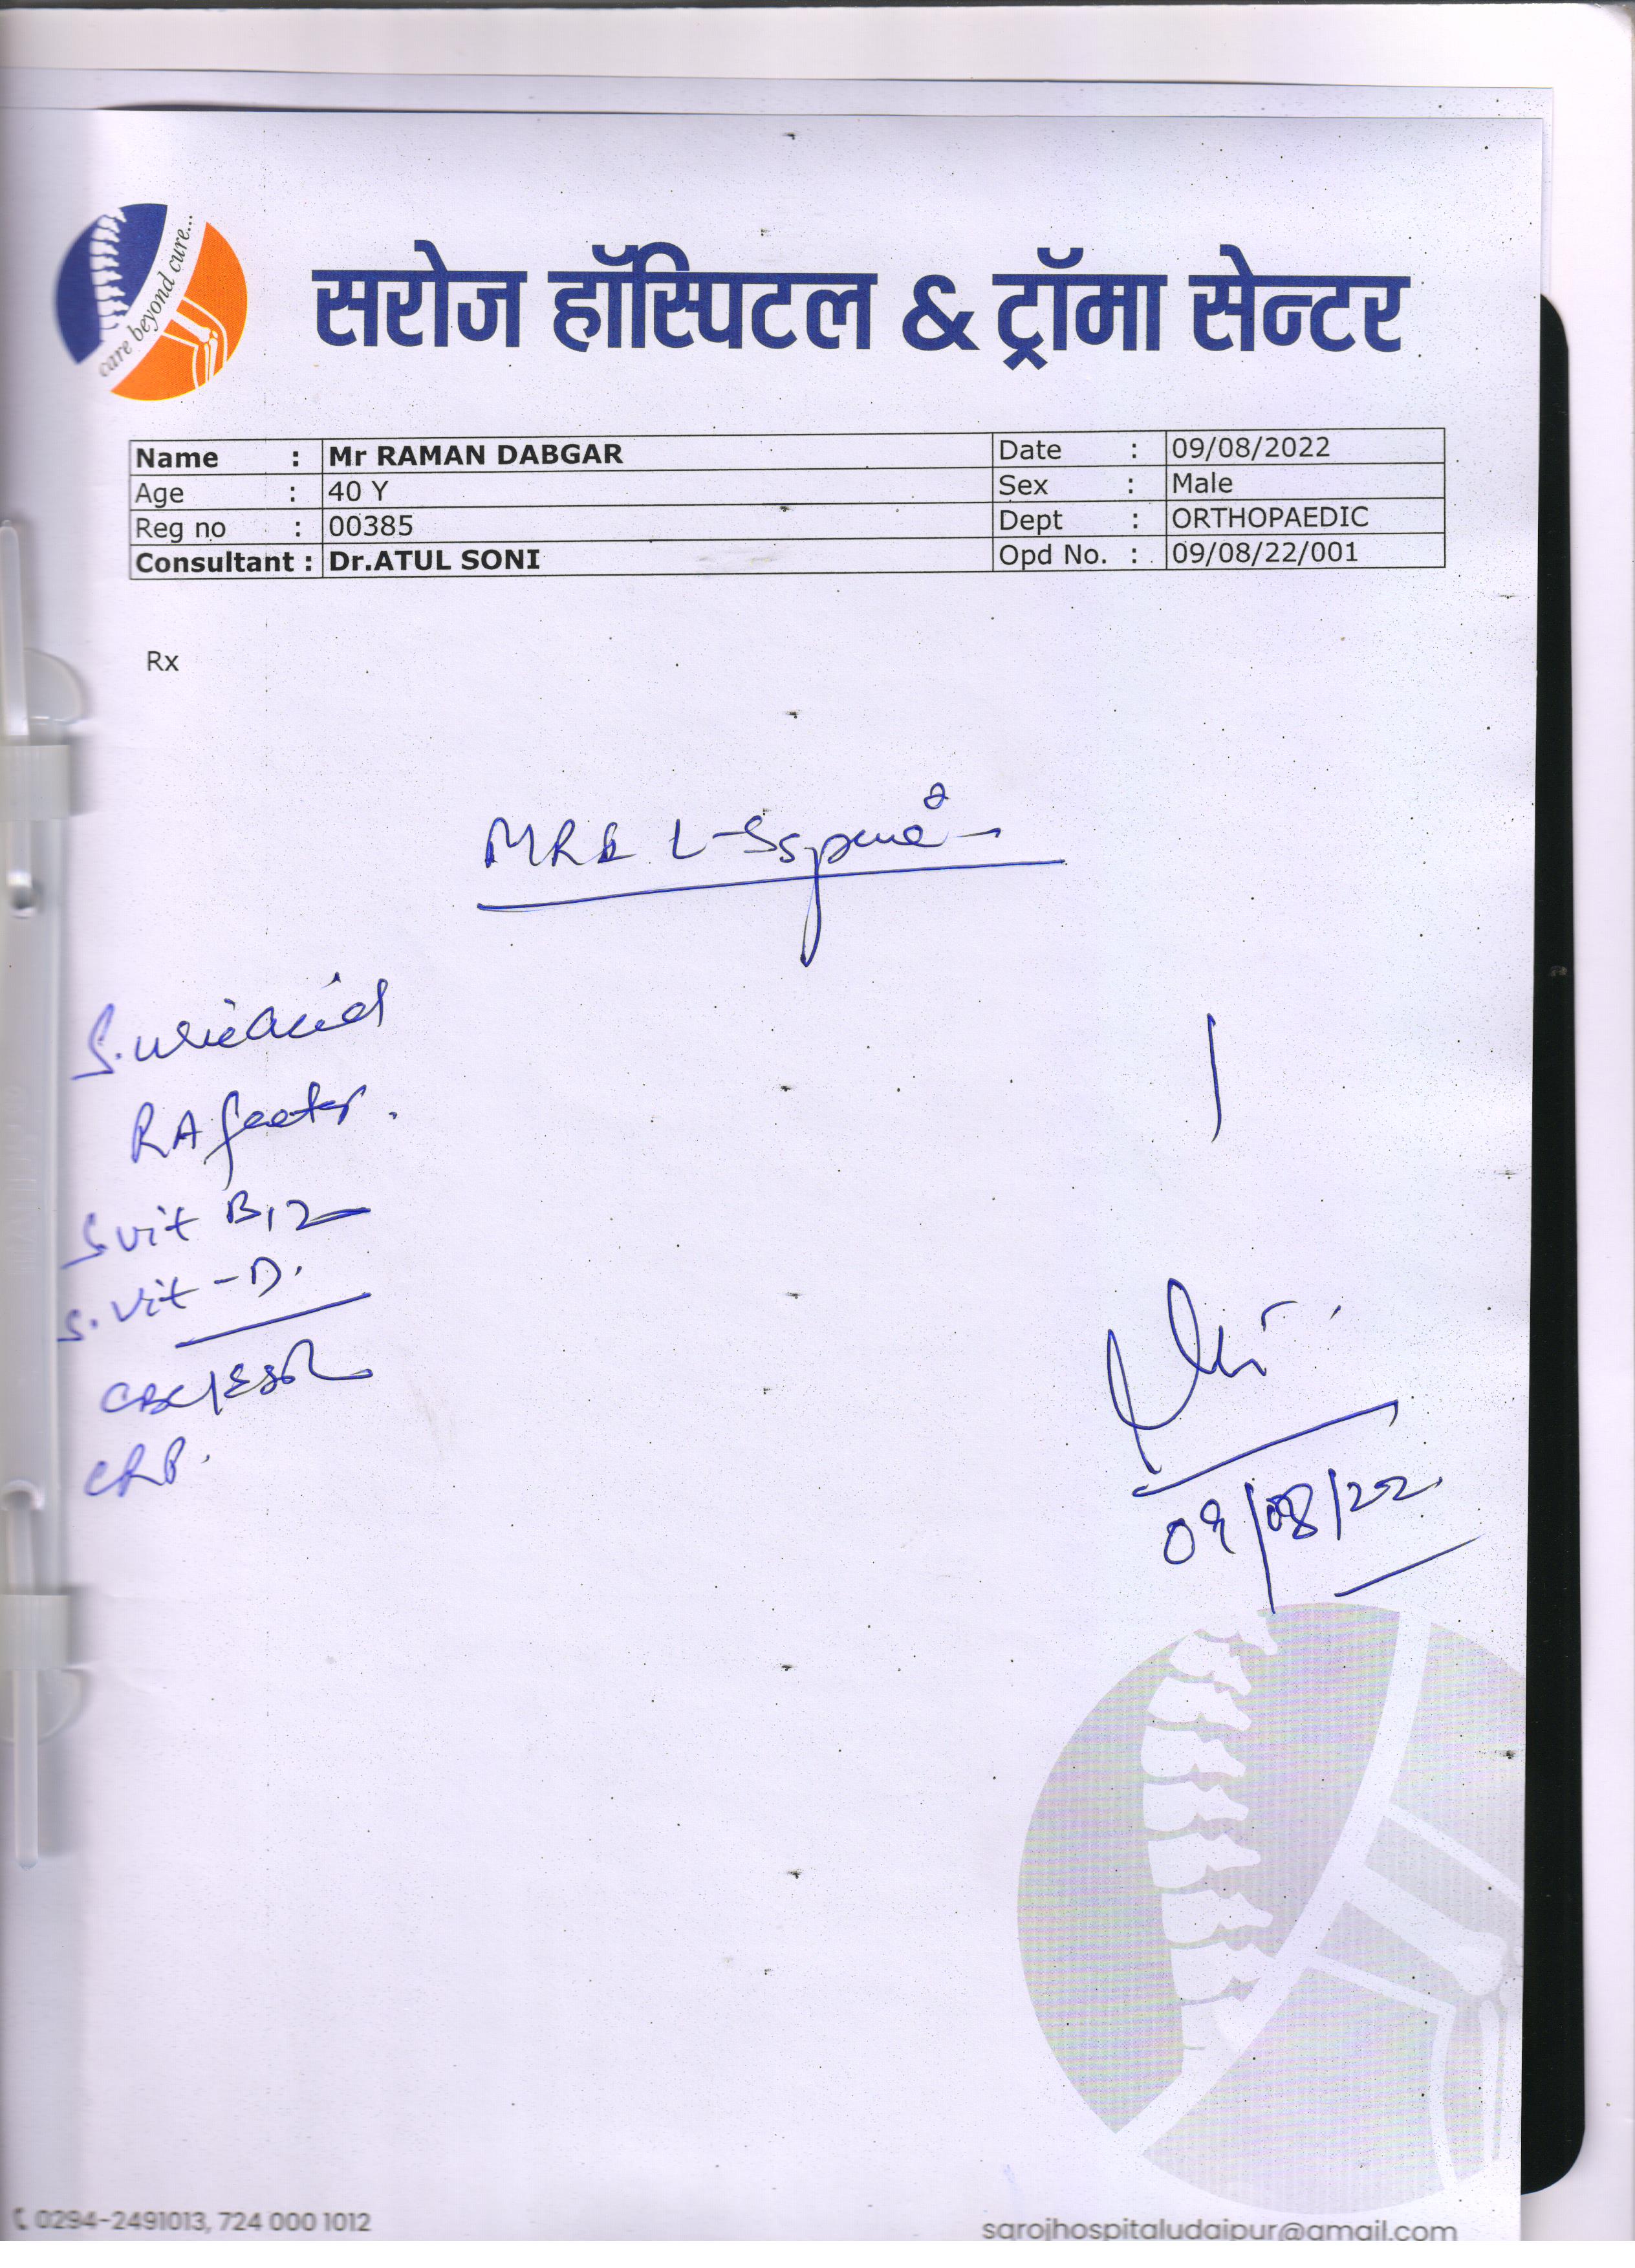 care beyond cure...
सरोज हॉस्पिटल & ट्रॉमा सेन्टर
Name : Mr RAMAN DABGAR Date : 09/08/2022
Age : 40 Y Sex : Male
Reg no : 00385 Dept : ORTHOPAEDIC
Consultant : Dr.ATUL SONI Opd No. : 09/08/22/001
Rx
MRI L-S spine
S. uric acid
RA factor.
S. vit B12
S. vit - D.
CBC/ESR
CRP.
09/08/22
0294-2491013, 724 000 1012 sarojhospitaludaipur@gmail.com